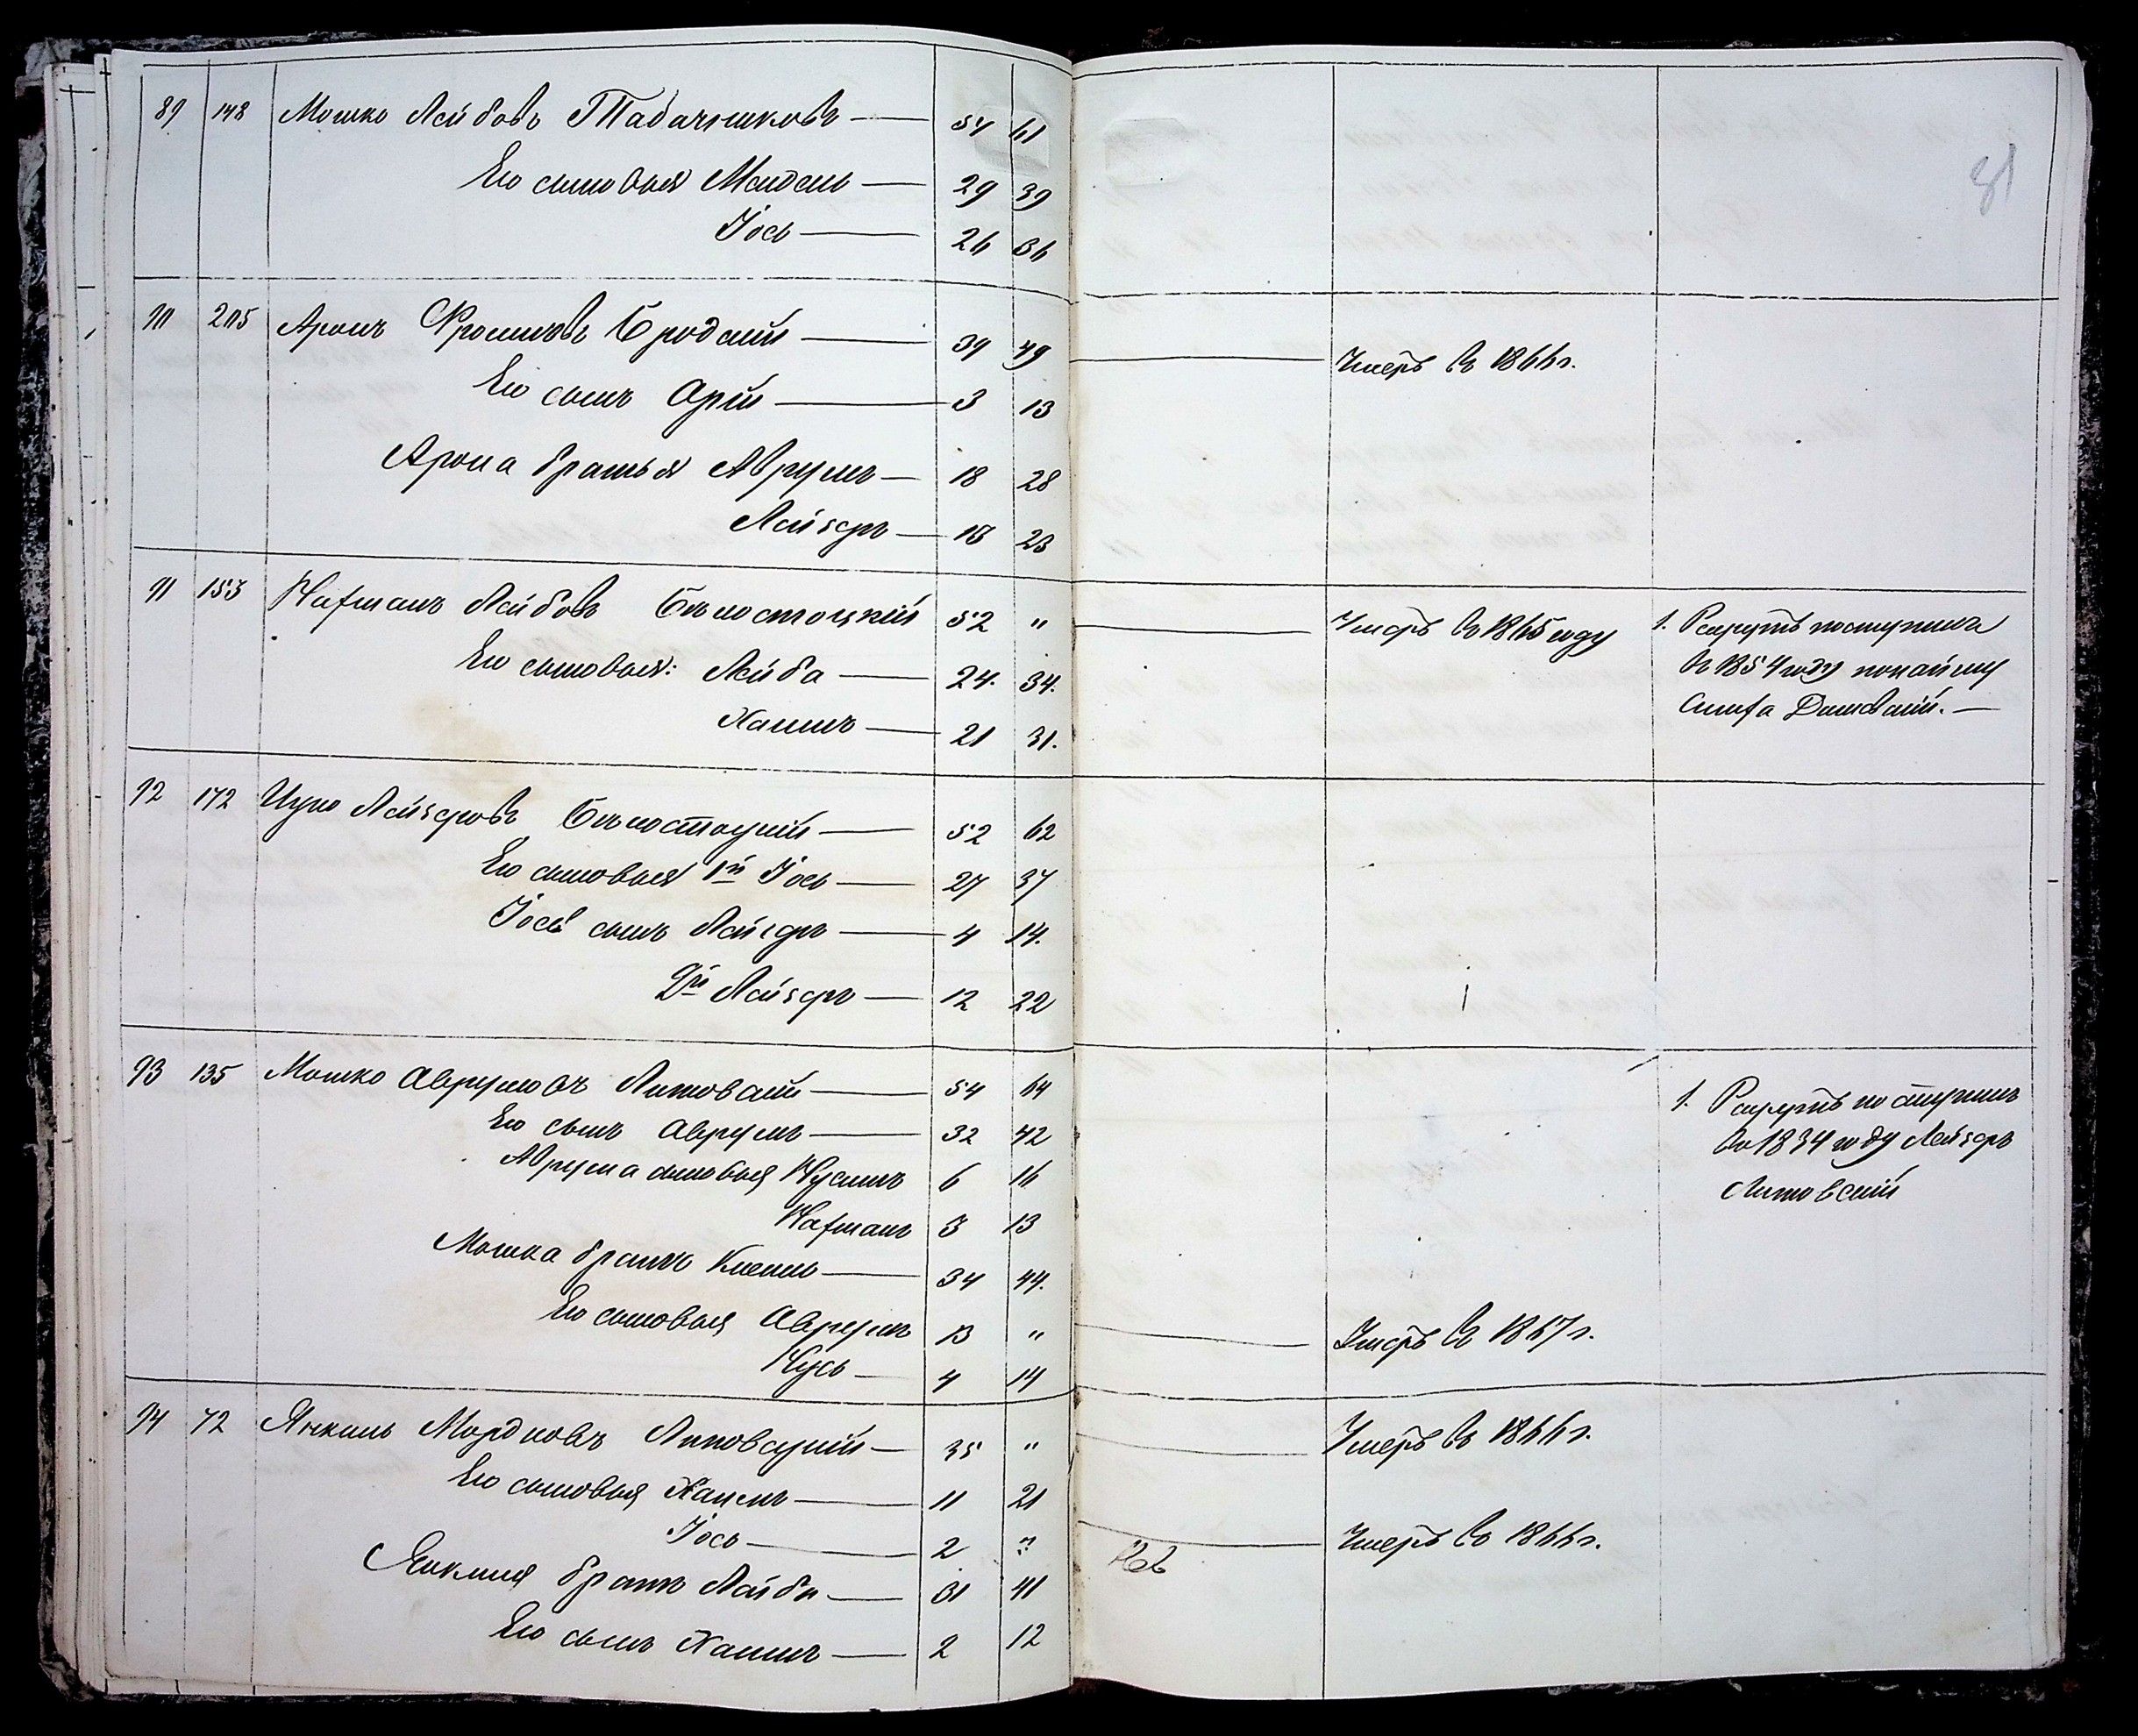 81
89 148 Мошко Лейбовъ Табачниковъ — 54 61
Его сыновья Мендель — 29 39
Іось — 26 36
90 205 Аронъ Фроимовъ Бродскій — 39 49 — Умеръ въ 1866 г.
Его сынъ Арій — 3 13
Арона братья Аврумъ — 18 28
Лейзеръ — 13 23
91 153 Нахманъ Лейбовъ Бѣлостоцкій 52 " — Умеръ въ 1865 году 1. Рекрутъ поступила
Его сыновья: Лейба — 24. 34. въ 1854 году по найму
Хаимъ — 21 31. —
92 172 Лейзеровъ Бѣлостоцкій — 52 62
Его сыновья 1й Іось — 27 37
Іося сынъ Лейзеръ — 4 14.
2й Лейзеръ — 12 22
93 135 Мошко Аврумовъ Литовскій — 54 64 1. Рекрутъ поступилъ
Его сынъ Аврумъ — 32 42 въ 1834 году Лейзеръ
Аврума сыновья Нусинъ 6 16 Литовскій
Нахманъ 3 13
Мошка братъ — 34 44.
Его сыновья Аврумъ 13 " — Умеръ въ 1867 г.
Нусь — 4 14
94 72 Янкель Мордковъ — 35 " — Умеръ въ 1866 г.
Его сыновья Хаимъ — 11 21
Іось — 2 " — Умеръ въ 1866 г.
Янкеля братъ Лейба — 31 41
Его сынъ Хаимъ — 2 12